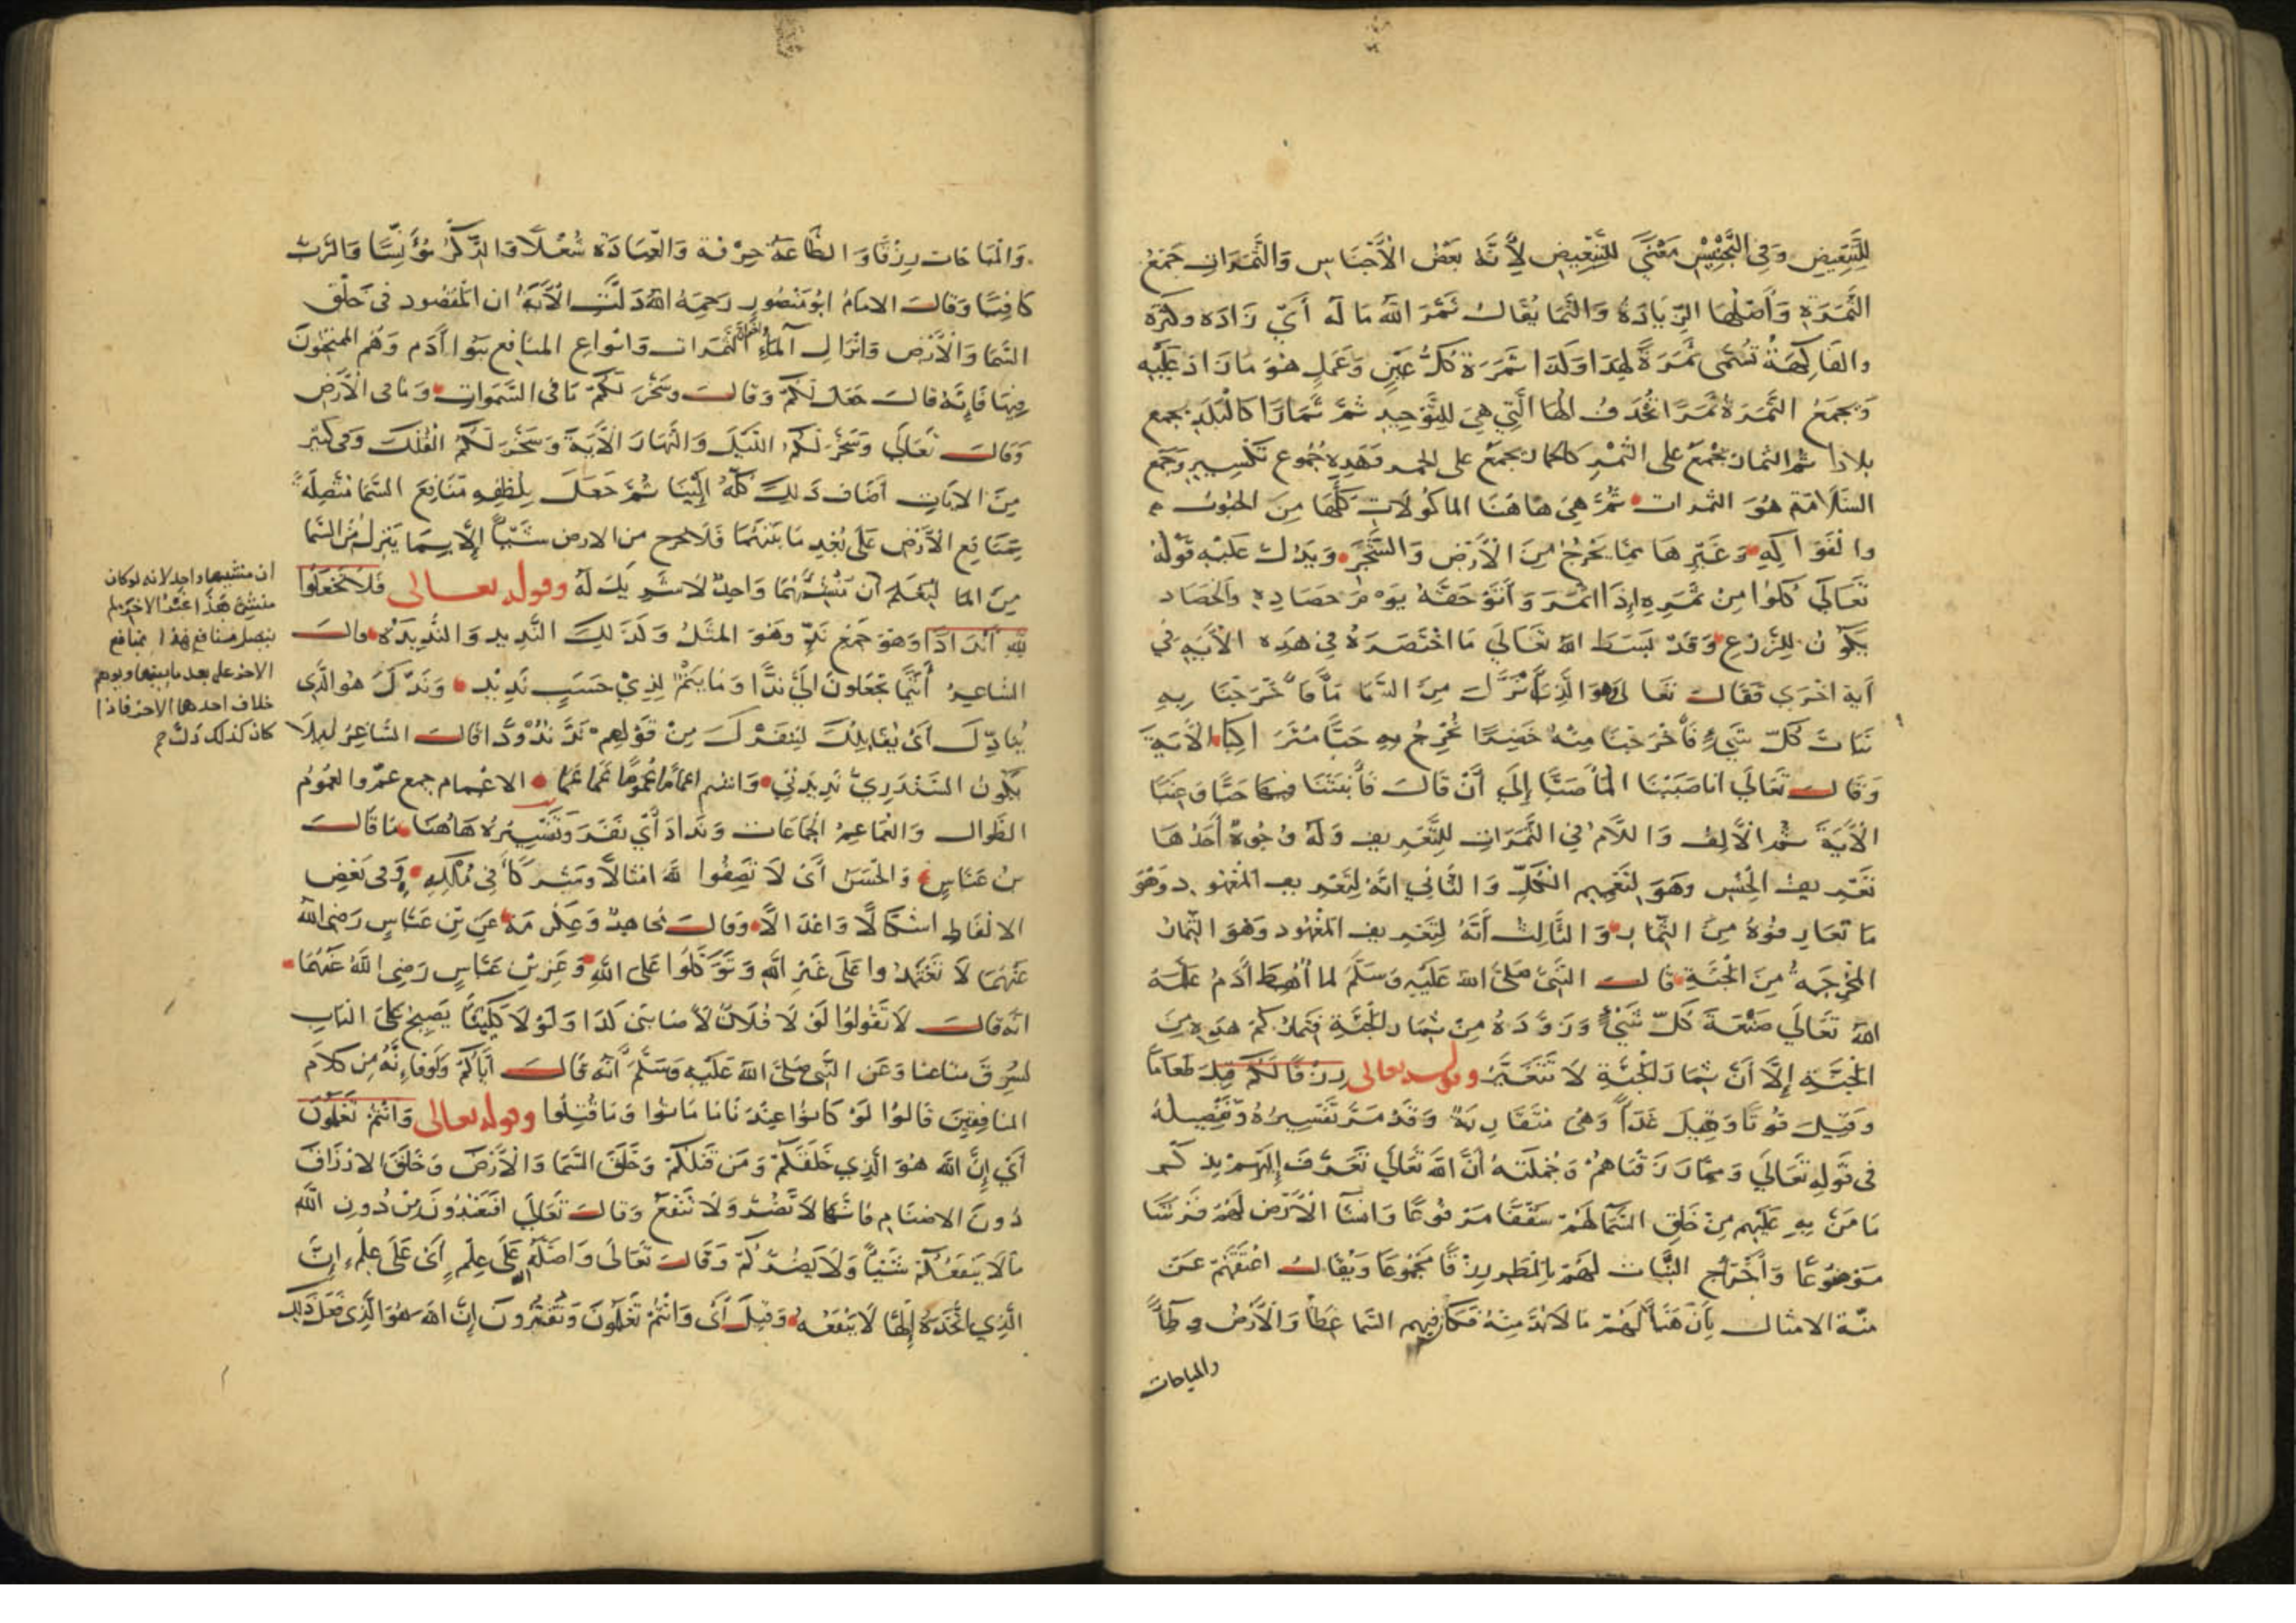 للتبعيض وفي التجنيس معنى للتبعيض لأنه بعض الأجناس والثمرات جمع
الثمرة وأصلها الزيادة والنما يقال ثمر الله ماله أي زاده وكثره
والفاكهة تسمى ثمرة لهذا ولذا ثمرة كل عين وعمل هو ما زاد عليه
ويجمع الثمرة ثمرا تحذف الها التي هي للتوحيد ثم ثمارا كالبلد يجمع
بلادا ثم الثمار يجمع على الثمر كالحمار يجمع على الحمر وهذه جموع تكسير وجمع
السلامة هو الثمرات ثم هي هاهنا الماكولات كلها من الحبوب
والفواكه وغيرها مما يخرج من الأرض والشجر ويدل عليه قوله
تعالى كلوا من ثمره إذا اثمر وأتوحقه يوم حصاده والحصاد
يكون للزرع وقد بسط الله تعالى ما اختصره في هذه الأية في
أية اخرى فقال تعالى وهو الذي أنزل من السما مأ فأخرجنا به
نبات كل شيء فأخرجنا منه خضرا نخرج منه حبا متراكبا الأية
وقال تعالى انا صببنا الما صبا إلى أن قال فأنبتنا فيها حبا وعنبا
الأية ثم الألف واللام في الثمرات للتعريف وله وجوه أحدها
تعريف الجنس وهو لتعميم الكل والثاني انه لتعريف المعهود وهو
ما تعارفوه من الثمار والثالث أنه لتعريف المعهود وهو الثمار
المخرجة من الجنة قال النبي صلى الله عليه وسلم لما أهبط أدم علمه
الله تعالى صنعة كل شيء وزوده من ثمار الجنة فثماركم هذه من
الجنة إلا أن ثمار الجنة لا تتغير وقوله تعالى رزقا لكم قيل طعاما
وقيل قوتا وقيل غدأ وهى متقاربة وقد مر تفسيره وتفصيله
في قوله تعالى ومما رزقناهم وجملته أن الله تعالى تعرف إليهم بذكر
ما من به عليهم من خلق السما لهم سقفا مرفوعا وانشا الأرض لهم فرشا
موضوعا وأخراج النبات لهم بالمطر رزقا مجموعا ويقال اعتقهم عن
منة الامثال بأن هيأ لهم ما لا بد منه فكافيهم السما غطأ والأرض وطأ
والمباحات
والمباحات رزقا والطاعة حرفة والعبادة شغلا والذكر مؤنسا والرب
كافيا وقال الامام ابو منصور رحمه الله دلت الأية ان المقصود في خلق
السما والأرض وانزال الماء واخراج الثمرات وانواع المنافع بنوا أدم وهم الممتحنون
فيها فإنه قال جعل لكم وقال وسخر لكم ما في السموات وما في الأرض
وقال تعالى وسخر لكم الليل والنهار الأية وسخر لكم الفلك وفى كثير
من الايات أضاف ذلك كله إلينا ثم جعل بلطفه منافع السما متصلة
بمنافع الأرض على بعد ما بينهما فلا تخرج من الارض شيأ إلا بما ينزل من السما
من الما ليعلم أن منشئهما واحد لا شريك له وقوله تعالى فلا تجعلوا
لله أندادا وهو جمع ند وهو المثل وكذلك النديد والنديدة وقال
الشاعر أتيما تجعلون إلي ندا وما يتم لذي حسب نديد وندك هو الذي
ينادك أى يقابلك ليتفرك من قولهم ند ندودا قال الشاعر لكيلا
يكون السندري نديدتي وانتم اعماما عموما عما الاعمام جمع عم والعموم
الطوال والعماعم الجماعات ونداد أي نفر وتفسيره هاهنا ما قال
بن عباس والحسن أى لا تصفوا لله امثالا وشركأ في ملكه وفى بعض
الالفاظ اشكالا واعدالا وقال مجاهد وعكرمة عن بن عباس رضى الله
عنهما لا تعتمدوا على غير الله وتوكلوا على الله وعن بن عباس رضى الله عنهما
انه قال لا تقولوا لولا فلان لأصابنى كذا ولولا كلبنا يصيح على الباب
لسرق متاعنا وعن النبي صلى الله عليه وسلم أنه قال أياكم ولو فإنه من كلام
المنافقين قالوا لو كانوا عندنا ما ماتوا وما قتلوا وقوله تعالى وانتم تعلمون
أي إن الله هو الذي خلقكم ومن قبلكم وخلق السما والأرض وخلق الارزاق
دون الاصنام فانها لا تضر ولا تنفع وقال تعالى افتعبدون من دون الله
ما لا ينفعكم شيأ ولا يضركم وقال تعالى واضله الله على علم أى على علمه إن
الذي اتخذه إلها لا ينفعه وقيل أى وانتم تعلمون وتقرون إن الله هو الذي فعل ذلك
ان منشيهما واحد لانه لو كان
منشئ هذا غير الاخر لم
يتصل منافع هذا بمنافع
الاخر على بعد ما بينهما ويوهم
خلاف احدهما الاخر فاذا
كان كذلك دل